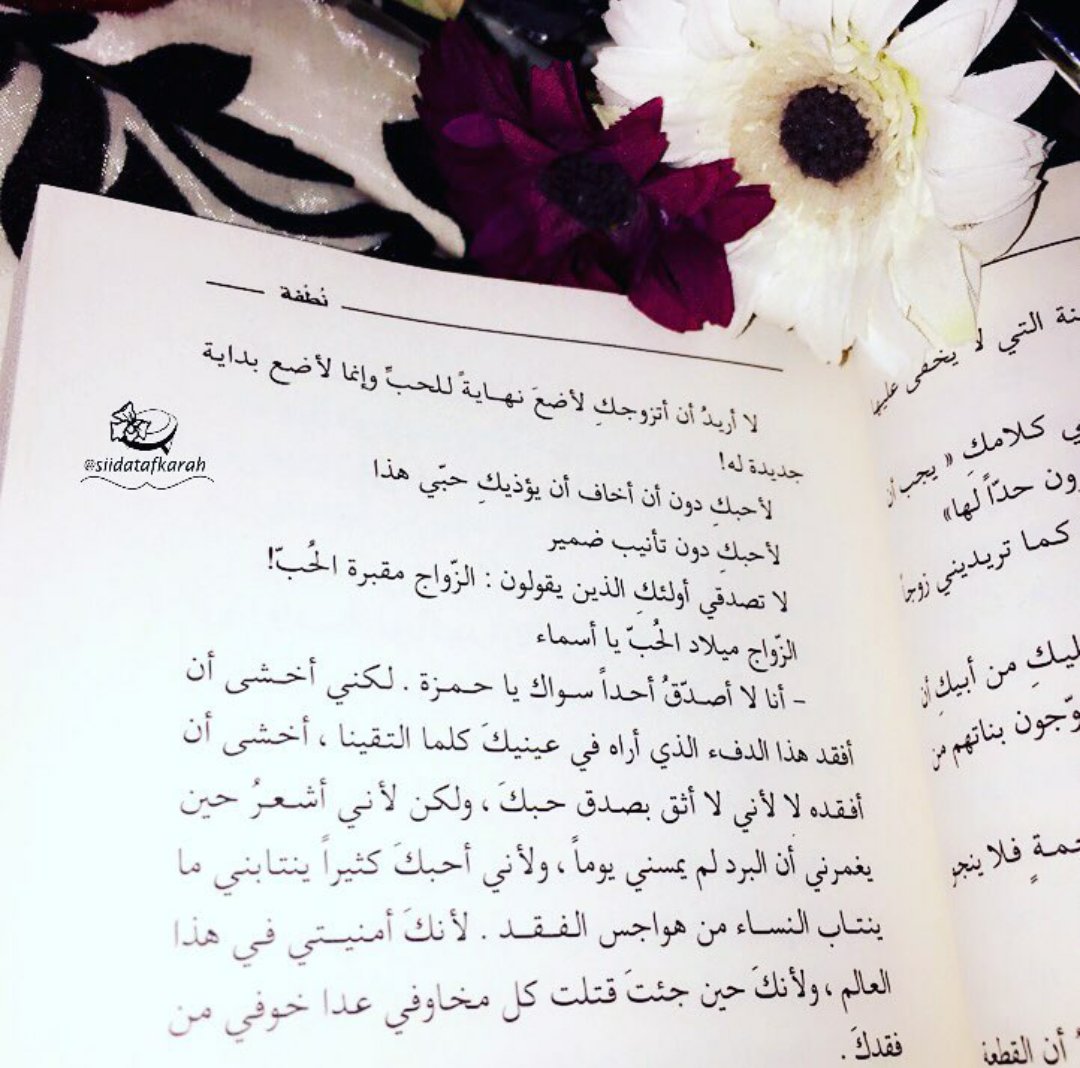 نُطْفة
لا أريدُ أن أتزوجكِ لأضعَ نهايةً للحبِّ وإنما لأضع بداية
جديدة له!
لأحبكِ دون أن أخاف أن يؤذيكِ حبّي هذا
لأحبكِ دون تأنيب ضمير
لا تصدقي أولئكِ الذين يقولون : الزّواج مقبرة الحُبّ!
الزّواج ميلاد الحُبّ يا أسماء
- أنا لا أصدّقُ أحداً سواك يا حمزة . لكني أخشى أن
أفقد هذا الدفء الذي أراه في عينيكَ كلما التقينا ، أخشى أن
أفقده لا لأني لا أثق بصدق حبكَ ، ولكن لأني أشعرُ حين
يغمرني أن البرد لم يمسني يوماً ، ولأني أحبكَ كثيراً ينتابني ما
ينتاب النساء من هواجس الفقد . لأنكَ أمنيتي في هذا
العالم ، ولأنكَ حين جئتَ قتلت كل مخاوفي عدا خوفي من
فقدكَ .
@siidatafkarah
التي لا يخفى عليها
كلامكِ « يجب أن
حدّاً لها»
كما تريديني زوجاً
من أبيكِ أن
بناتهم من
فلا ينجو
أن القطعة